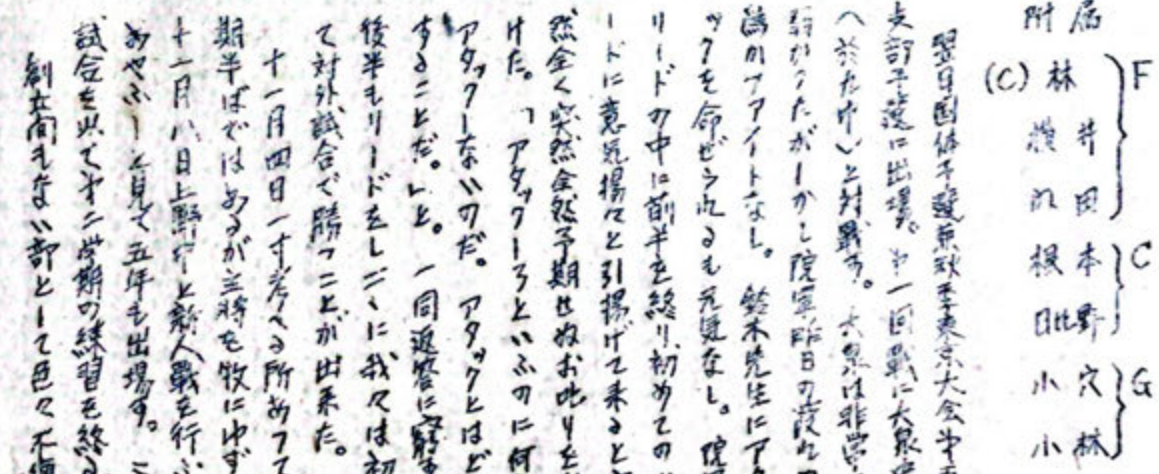 附属
(C) 林 F
横井
沢田
根本 C
日比野
小穴 G
小林
翌日国体予選兼秋季東京大会中
支部予選に出場。㐧一回戦に大泉
へ於たけ)と対戦す。大泉は非常
弱かったがしかし院軍昨日の疲れ
為かファイトなし。鈴木先生にア
ックを命ぜられるも元気なし。院
リードの中に前半を終り、初めての
ードに意気揚々と引揚げて来ると
然全く突然全然予期せぬお叱りを
けた。「アタックしろといふのに何
アタックしないのだ。アタックとはど
することだ。」と。一同返答に窮す
後半もリードをしこゝに我々は初
て対外試合で勝つことが出来た。
十一月四日一寸考へる所あって
期半ばではあるが主将を牧にゆず
十一月八日上野中と新人戦を行ふ
あやふしと見て五年も出場す。こ
試合を以て㐧二学期の練習を終る
創立間もない部として色々不